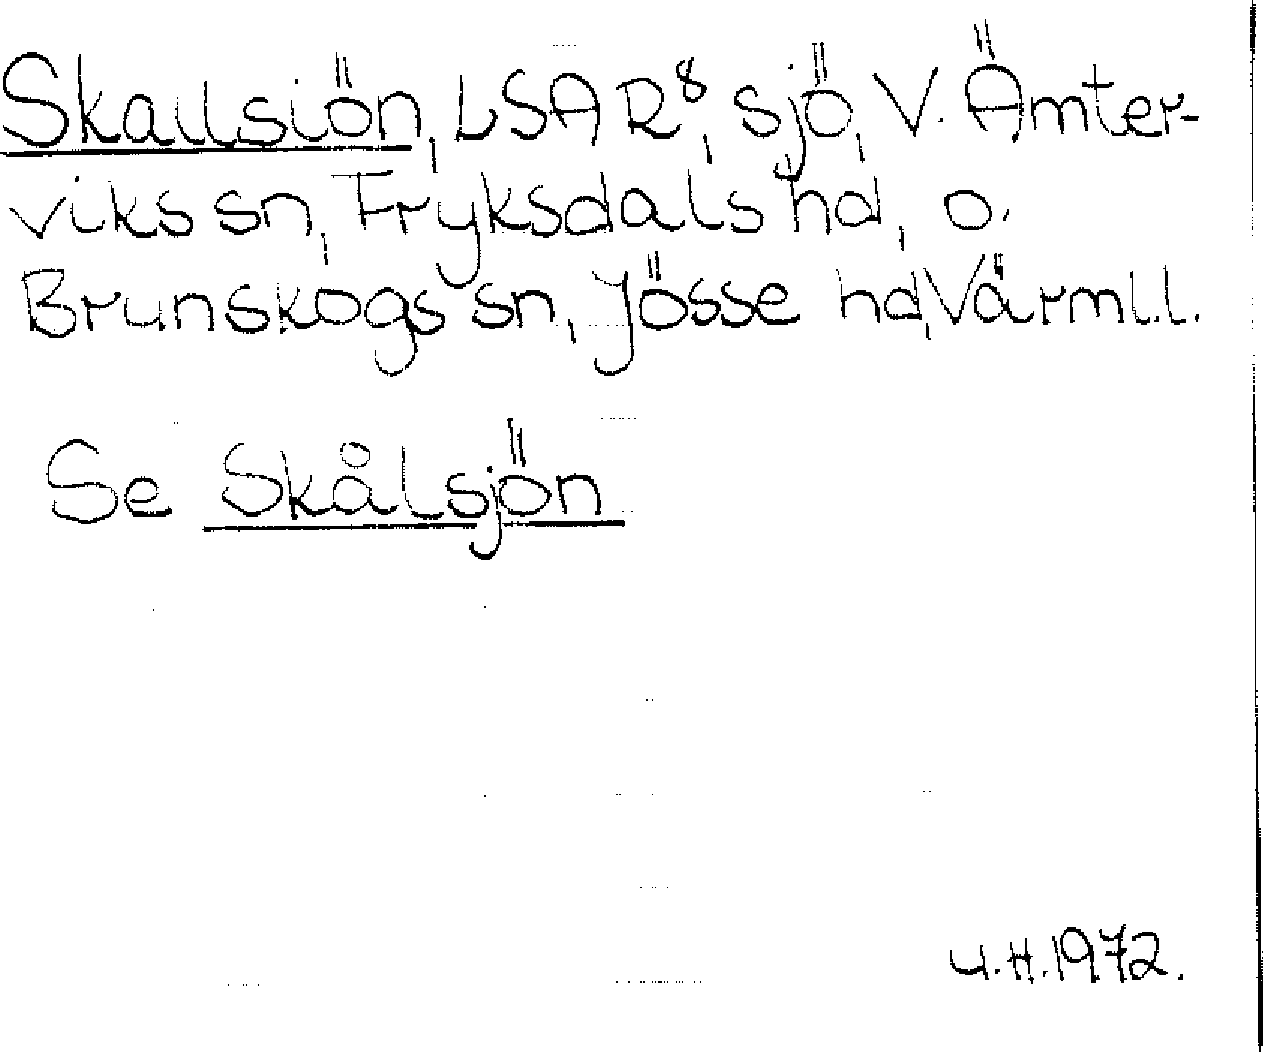 Skallsiön, LSAR⁸, sjö, V. Ämter-
viks sn, Fryksdals hd, o.
Brunskogs sn, Jösse hd, Värml.l.
Se Skålsjön
U.H.1972.